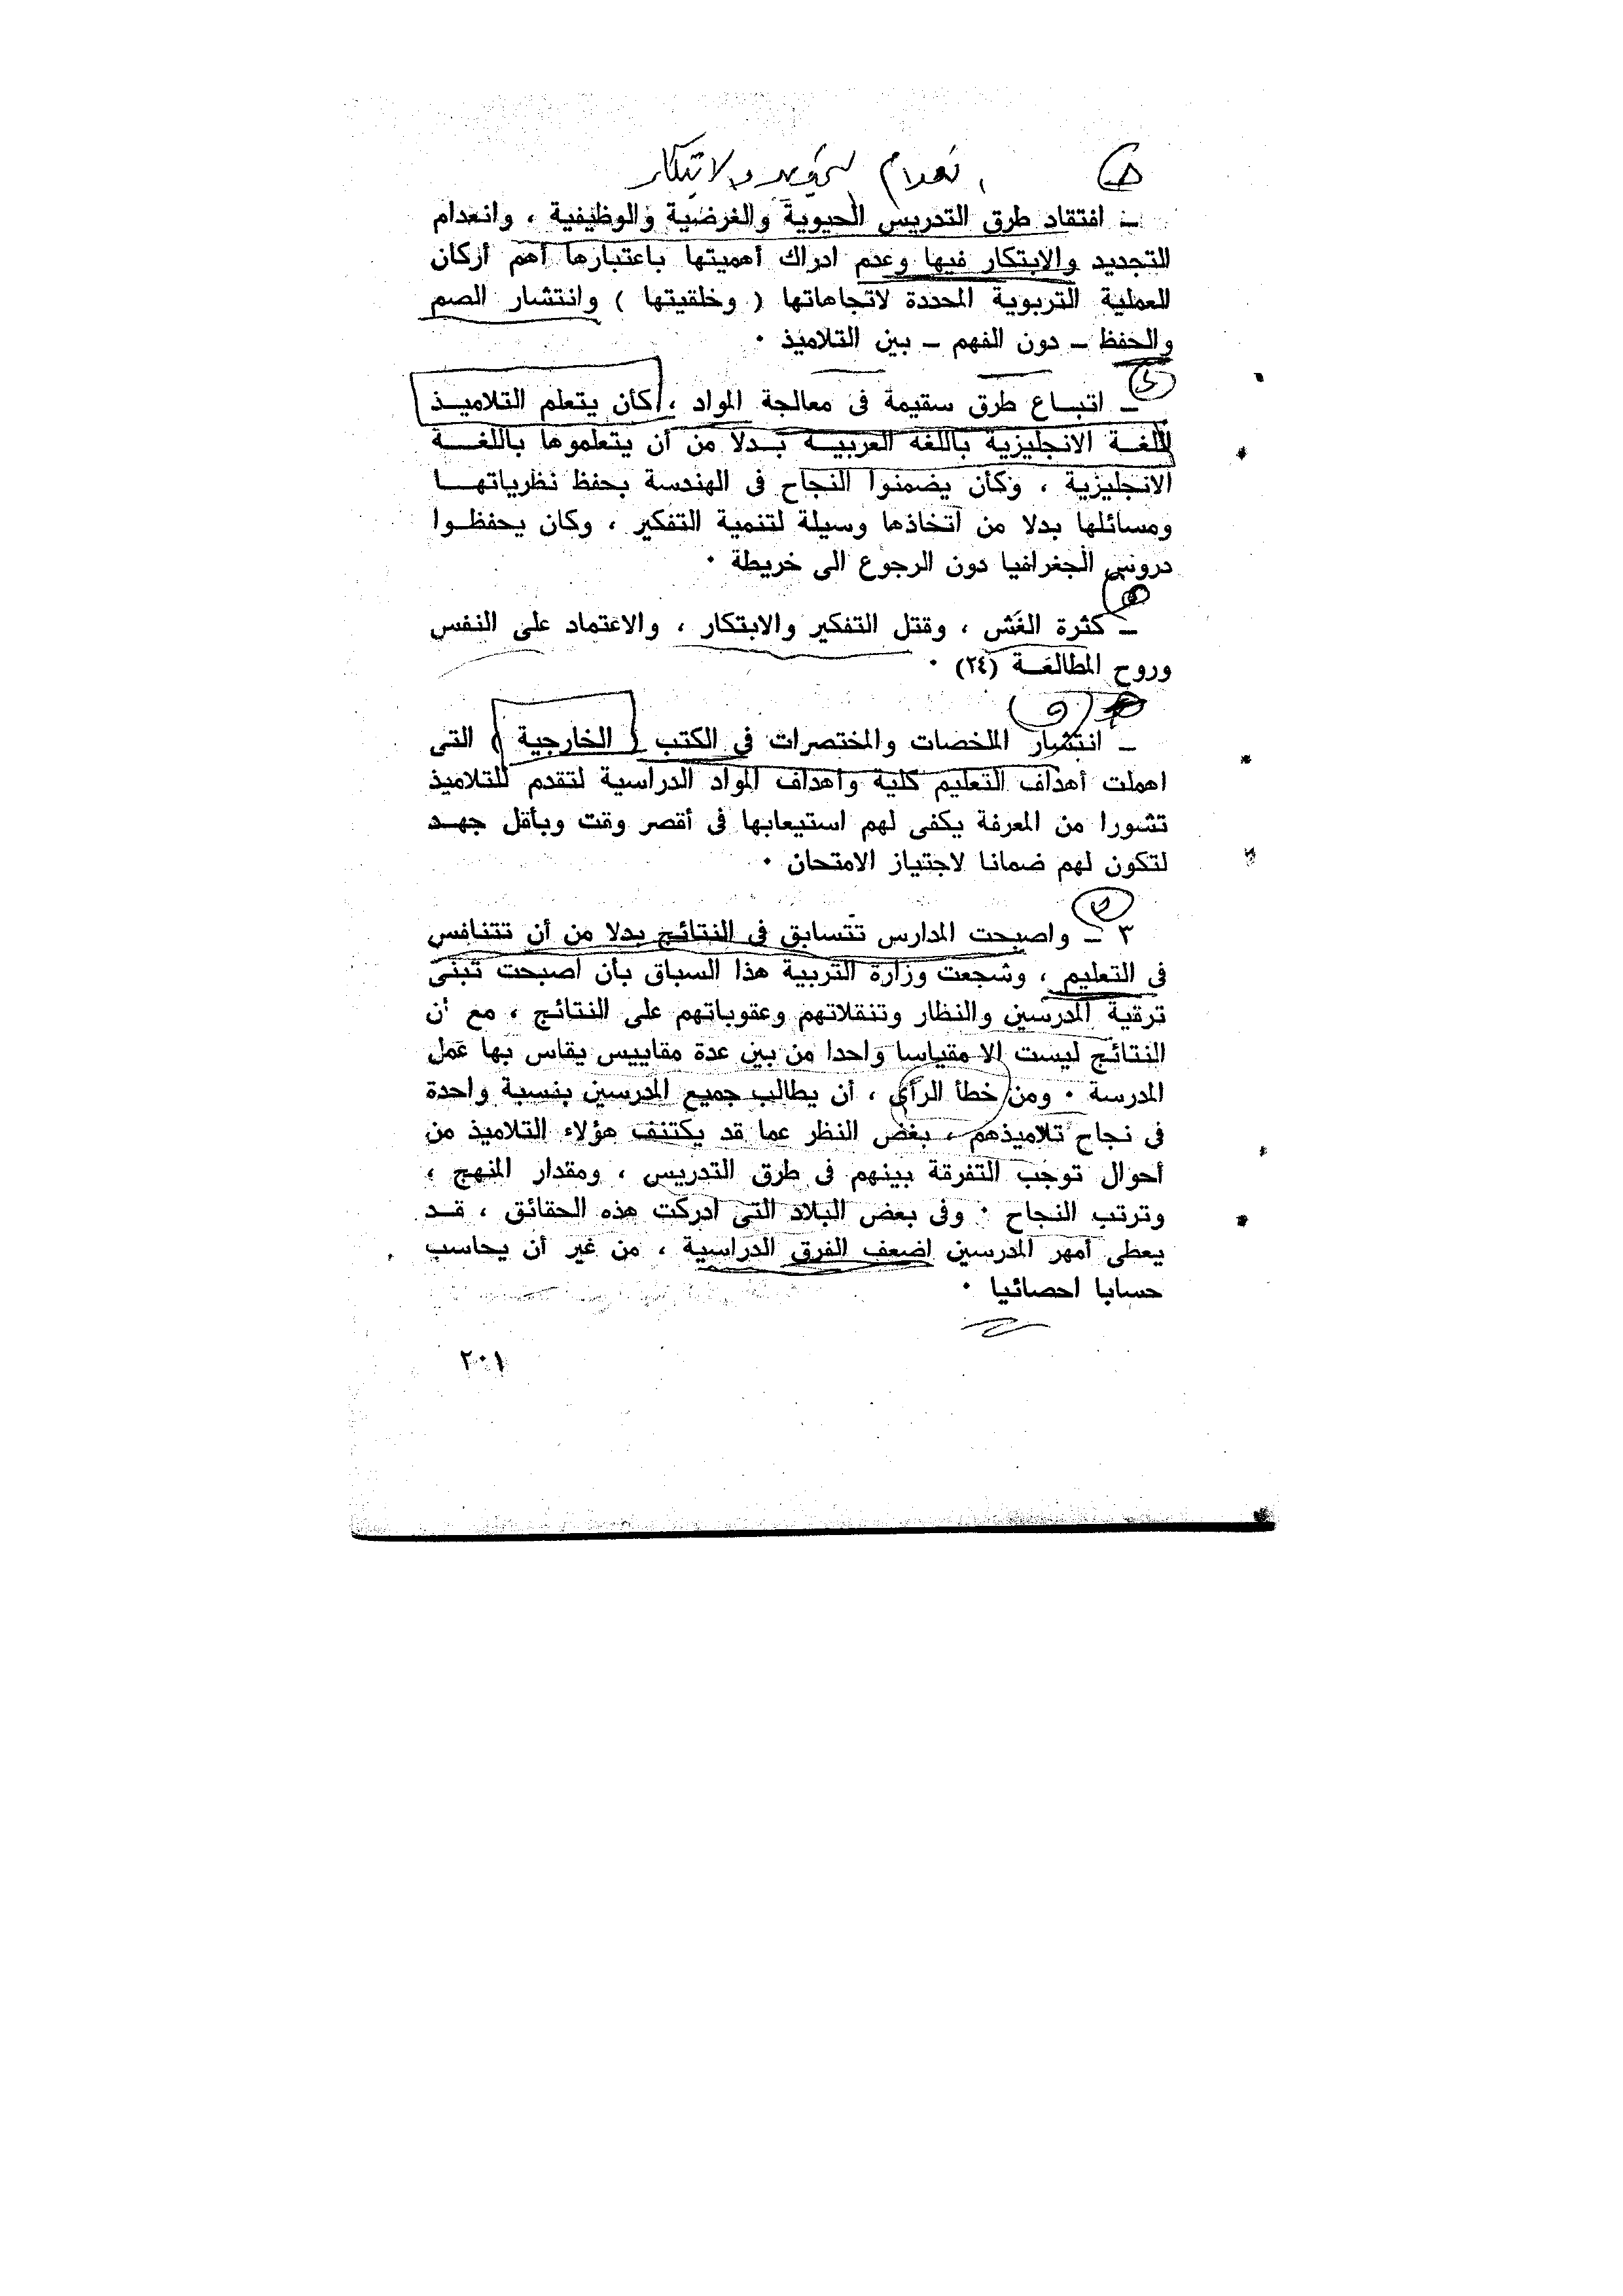 انعدام التجديد والابتكار
ـ افتقاد طرق التدريس الحيوية والغرضية والوظيفية ، وانعدام
التجديد والابتكار فيها وعدم ادراك أهميتها باعتبارها أهم أركان
العملية التربوية المحددة لاتجاهاتها ( وخلقيتها ) وانتشار الصم
والحفظ ـ دون الفهم ـ بين التلاميذ ٠
ـ اتبــاع طرق سقيمة فى معالجة المواد ، كأن يتعلم التلاميــذ
اللغــة الانجليزية باللغة العربيــة بــدلا من أن يتعلموها باللغــة
الانجليزية ، وكأن يضمنوا النجاح فى الهندسة بحفظ نظرياتهــا
ومسائلها بدلا من اتخاذها وسيلة لتنمية التفكير ، وكان يحفظــوا
دروس الجغرافيا دون الرجوع الى خريطة ٠
ـ كثرة الغش ، وقتل التفكير والابتكار ، والاعتماد على النفس
وروح المطالعــة (٢٤) ٠
ـ انتشار الملخصات والمختصرات فى الكتب ( الخارجية ) التى
اهملت أهداف التعليم كلية وأهداف المواد الدراسية لتقدم للتلاميذ
تشورا من المعرفة يكفى لهم استيعابها فى أقصر وقت وبأقل جهــد
لتكون لهم ضمانا لاجتياز الامتحان ٠
٣ ـ واصبحت المدارس تتسابق فى النتائج بدلا من أن تتنافس
فى التعليم ، وشجعت وزارة التربية هذا السباق بأن اصبحت تبنى
ترقية المدرسين والنظار وتنقلاتهم وعقوباتهم على النتائج ، مع أن
النتائج ليست الا مقياسا واحدا من بين عدة مقاييس يقاس بها عمل
المدرسة ٠ ومن خطأ الرأى ، أن يطالب جميع المدرسين بنسبة واحدة
فى نجاح تلاميذهم ، بغض النظر عما قد يكتنف هؤلاء التلاميذ من
أحوال توجب التفرقة بينهم فى طرق التدريس ، ومقدار المنهج ،
وترتب النجاح ٠ وفى بعض البلاد التى ادركت هذه الحقائق ، قــد
يعطى أمهر المدرسين اضعف الفرق الدراسية ، من غير أن يحاسب
حسابا احصائيا ٠
٢٠١